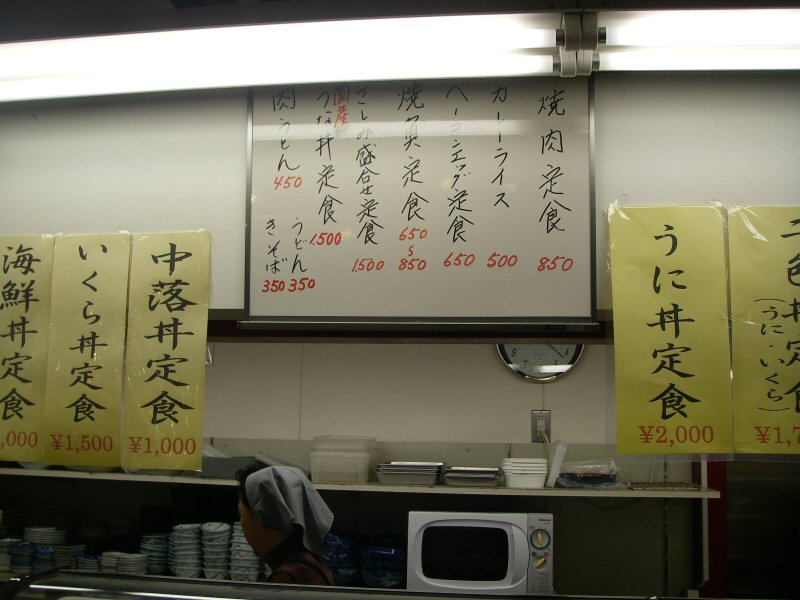 焼肉定食
850
カレーライス
500
ベーコンエッグ定食
650
焼魚定食
650
〜
850
さしみ盛合せ定食
1500
国産
うな丼定食
1.500
肉うどん
450
うどん
350
きそば
350
海鮮丼定食
,000
いくら丼定食
¥1,500
中落丼定食
¥1,000
うに丼定食
¥2,000
二色丼定食
(うに・いくら)
¥1,7